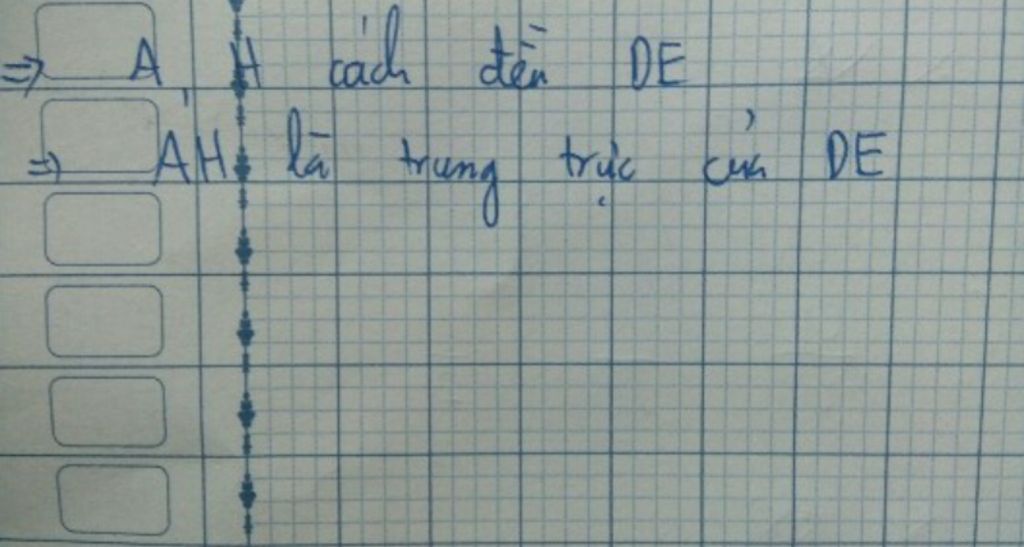 ⇒ A H cách đến DE
⇒ AH là trung trực của DE